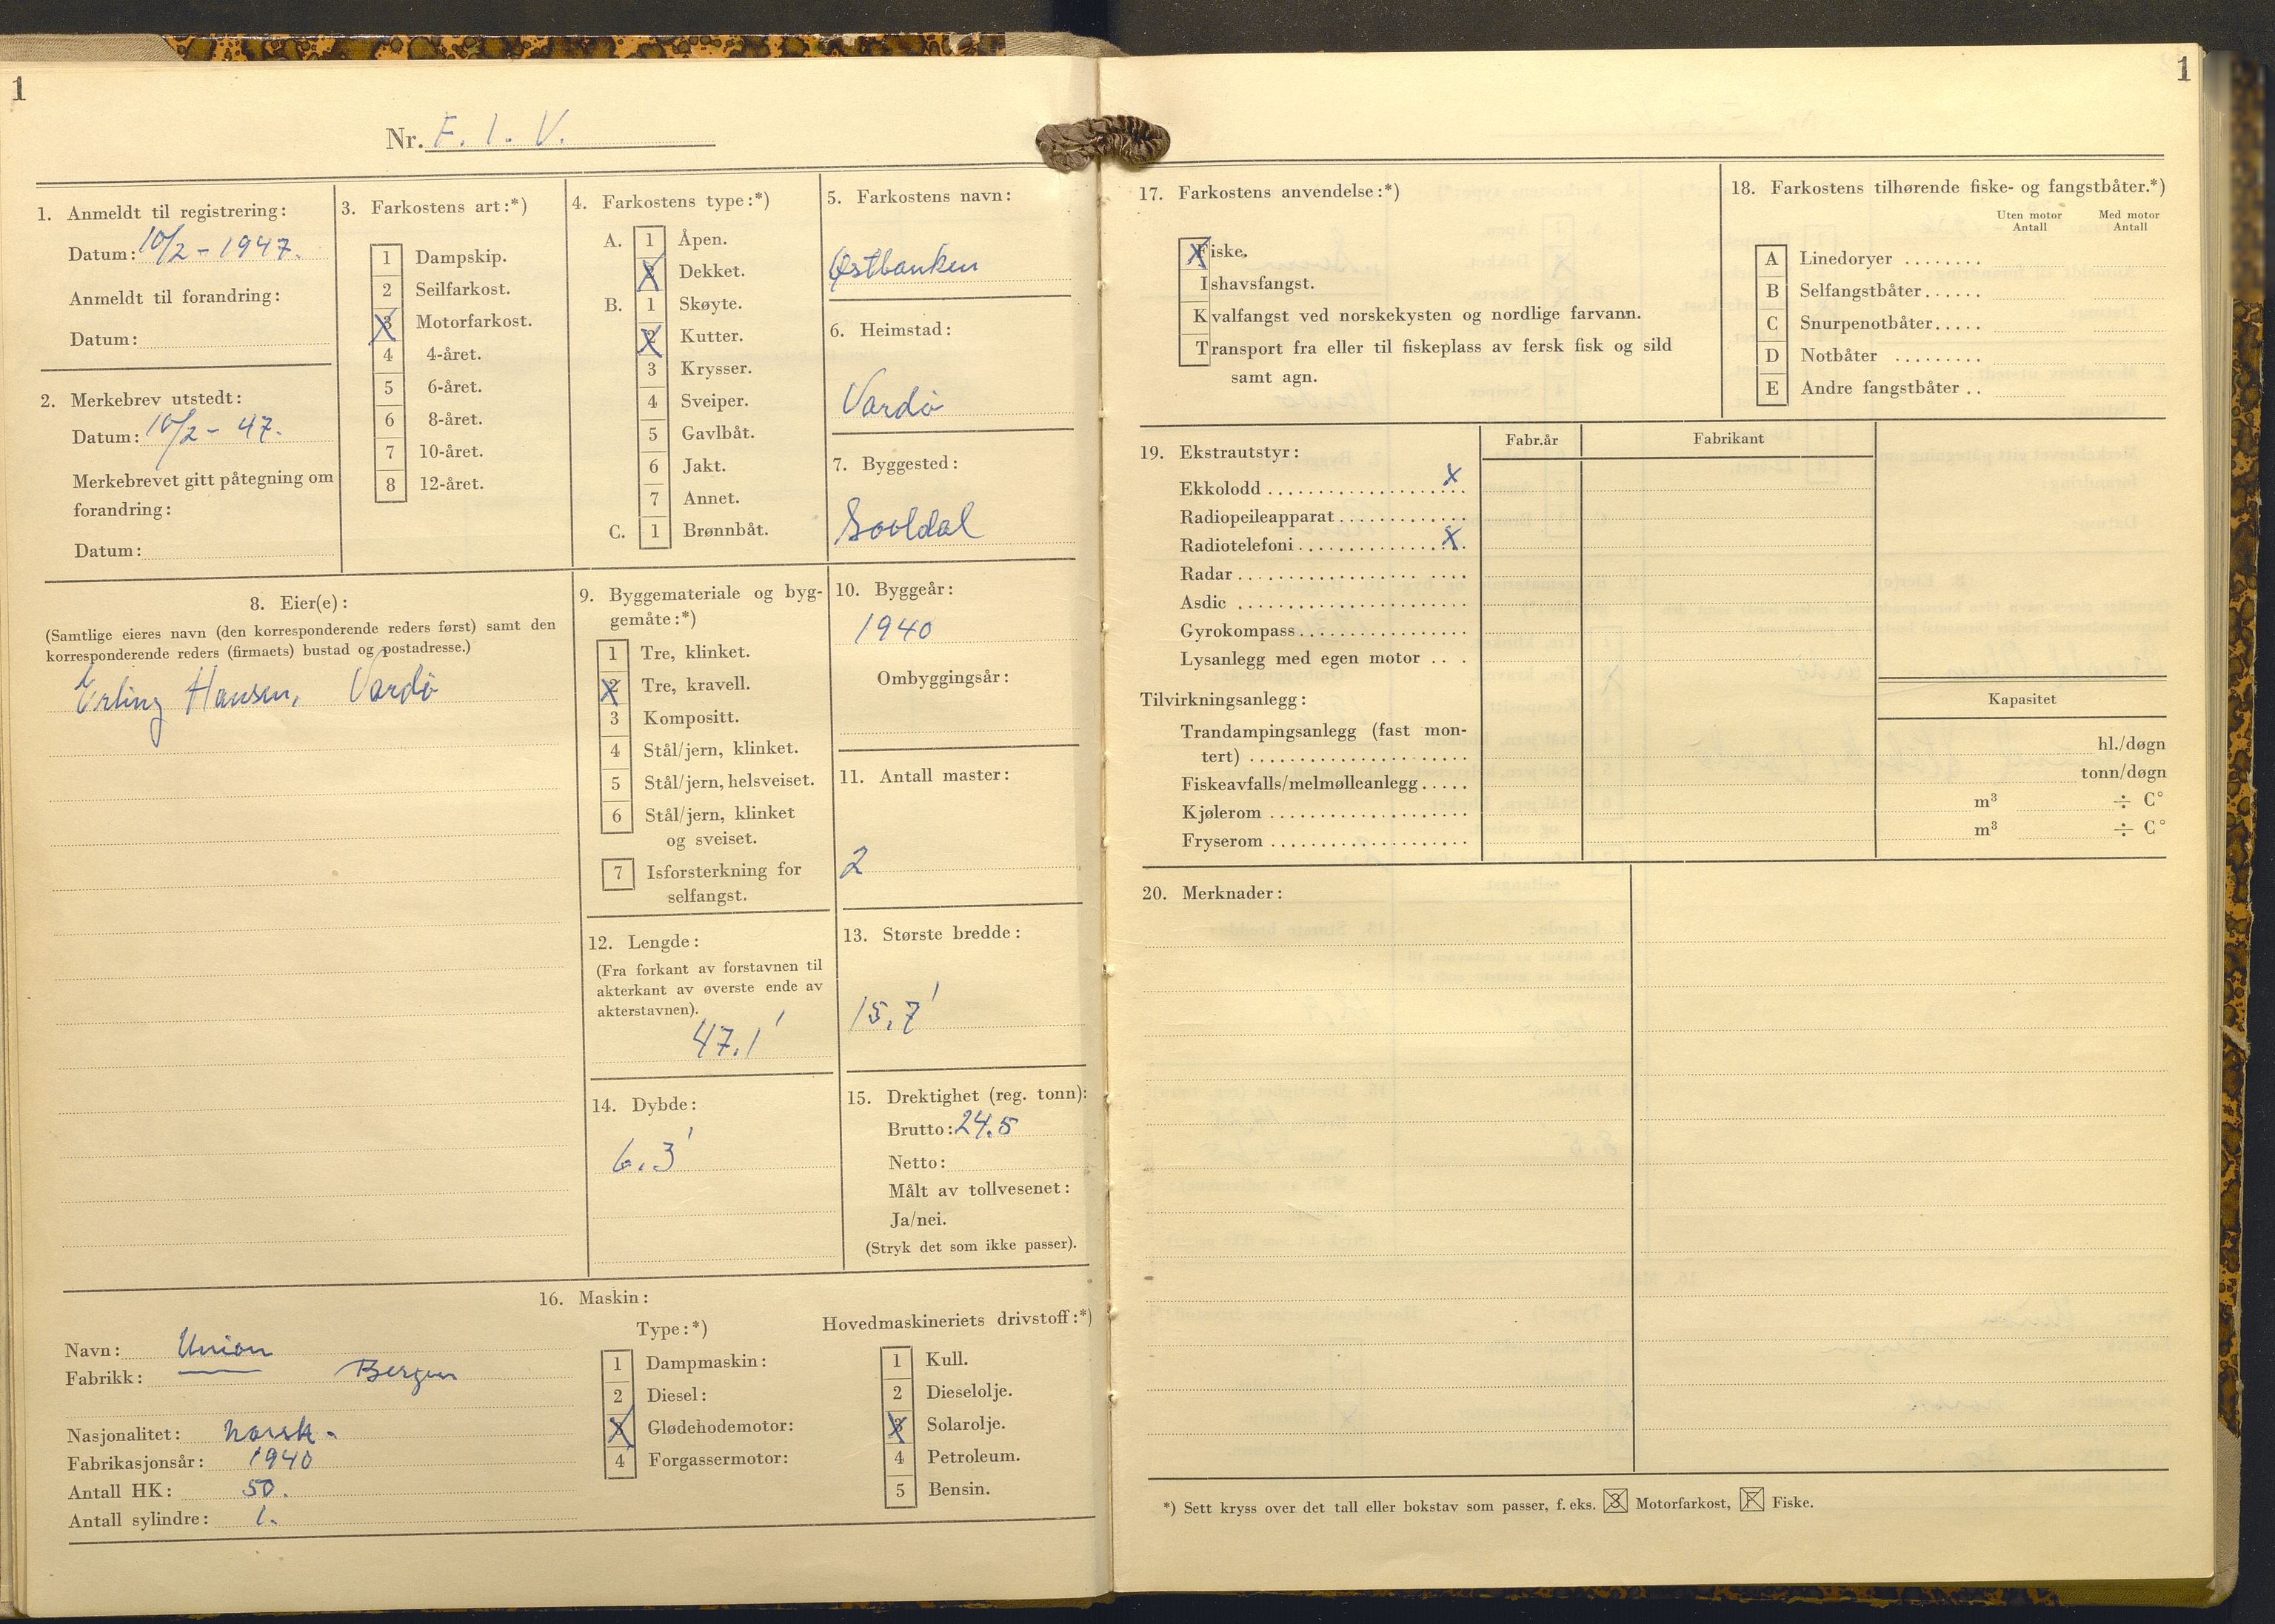 1
Nr. F. 1. V.
1. Anmeldt til registrering:
Datum: 10/2 - 1947.
Anmeldt til forandring:
Datum:
2. Merkebrev utstedt:
Datum: 10/2 - 47.
Merkebrevet gitt påtegning om
forandring:
Datum:
3. Farkostens art:*)
1 Dampskip.
2 Seilfarkost.
3 Motorfarkost.
4 4-året.
5 6-året.
6 8-året.
7 10-året.
8 12-året.
4. Farkostens type:*)
A. 1 Åpen.
2 Dekket.
B. 1 Skøyte.
2 Kutter.
3 Krysser.
4 Sveiper.
5 Gavlbåt.
6 Jakt.
7 Annet.
C. 1 Brønnbåt.
5. Farkostens navn:
Østbanken
6. Heimstad:
Vardø
7. Byggested:
8. Eier(e):
(Samtlige eieres navn (den korresponderende reders først) samt den
korresponderende reders (firmaets) bustad og postadresse.)
Erling Hansen, Vardø
9. Byggemateriale og byg-
gemåte:*)
1 Tre, klinket.
2 Tre, kravell.
3 Kompositt.
4 Stål/jern, klinket.
5 Stål/jern, helsveiset.
6 Stål/jern, klinket
og sveiset.
7 Isforsterkning for
selfangst.
10. Byggeår:
1940
Ombyggingsår:
11. Antall master:
2
12. Lengde:
(Fra forkant av forstavnen til
akterkant av øverste ende av
akterstavnen).
47.1'
13. Største bredde:
15.7'
14. Dybde:
6.3'
15. Drektighet (reg. tonn):
Brutto: 24.5
Netto:
Målt av tollvesenet:
Ja/nei.
(Stryk det som ikke passer).
16. Maskin:
Navn: Union
Fabrikk: — Bergen
Nasjonalitet: norsk -
Fabrikasjonsår: 1940
Antall HK: 50.
Antall sylindre: 1.
Type:*)
1 Dampmaskin:
2 Diesel:
3 Glødehodemotor:
4 Forgassermotor:
Hovedmaskineriets drivstoff:*)
1 Kull.
2 Dieselolje.
3 Solarolje.
4 Petroleum.
5 Bensin.
1
17. Farkostens anvendelse:*)
Fiske.
Ishavsfangst.
Kvalfangst ved norskekysten og nordlige farvann.
Transport fra eller til fiskeplass av fersk fisk og sild
samt agn.
18. Farkostens tilhørende fiske- og fangstbåter.*)
Uten motor Med motor
Antall Antall
A Linedoryer ........
B Selfangstbåter......
C Snurpenotbåter.....
D Notbåter .........
E Andre fangstbåter ..
19. Ekstrautstyr:
Fabr.år Fabrikant
Ekkolodd .................... x
Radiopeileapparat.............
Radiotelefoni................. x
Radar.......................
Asdic .......................
Gyrokompass.................
Lysanlegg med egen motor ...
Tilvirkningsanlegg:
Kapasitet
Trandampingsanlegg (fast mon-
tert) ...................... hl./døgn
Fiskeavfalls/melmølleanlegg..... tonn/døgn
Kjølerom .................... m³ ÷ C°
Fryserom .................... m³ ÷ C°
20. Merknader:
*) Sett kryss over det tall eller bokstav som passer, f. eks. 3 Motorfarkost, F Fiske.